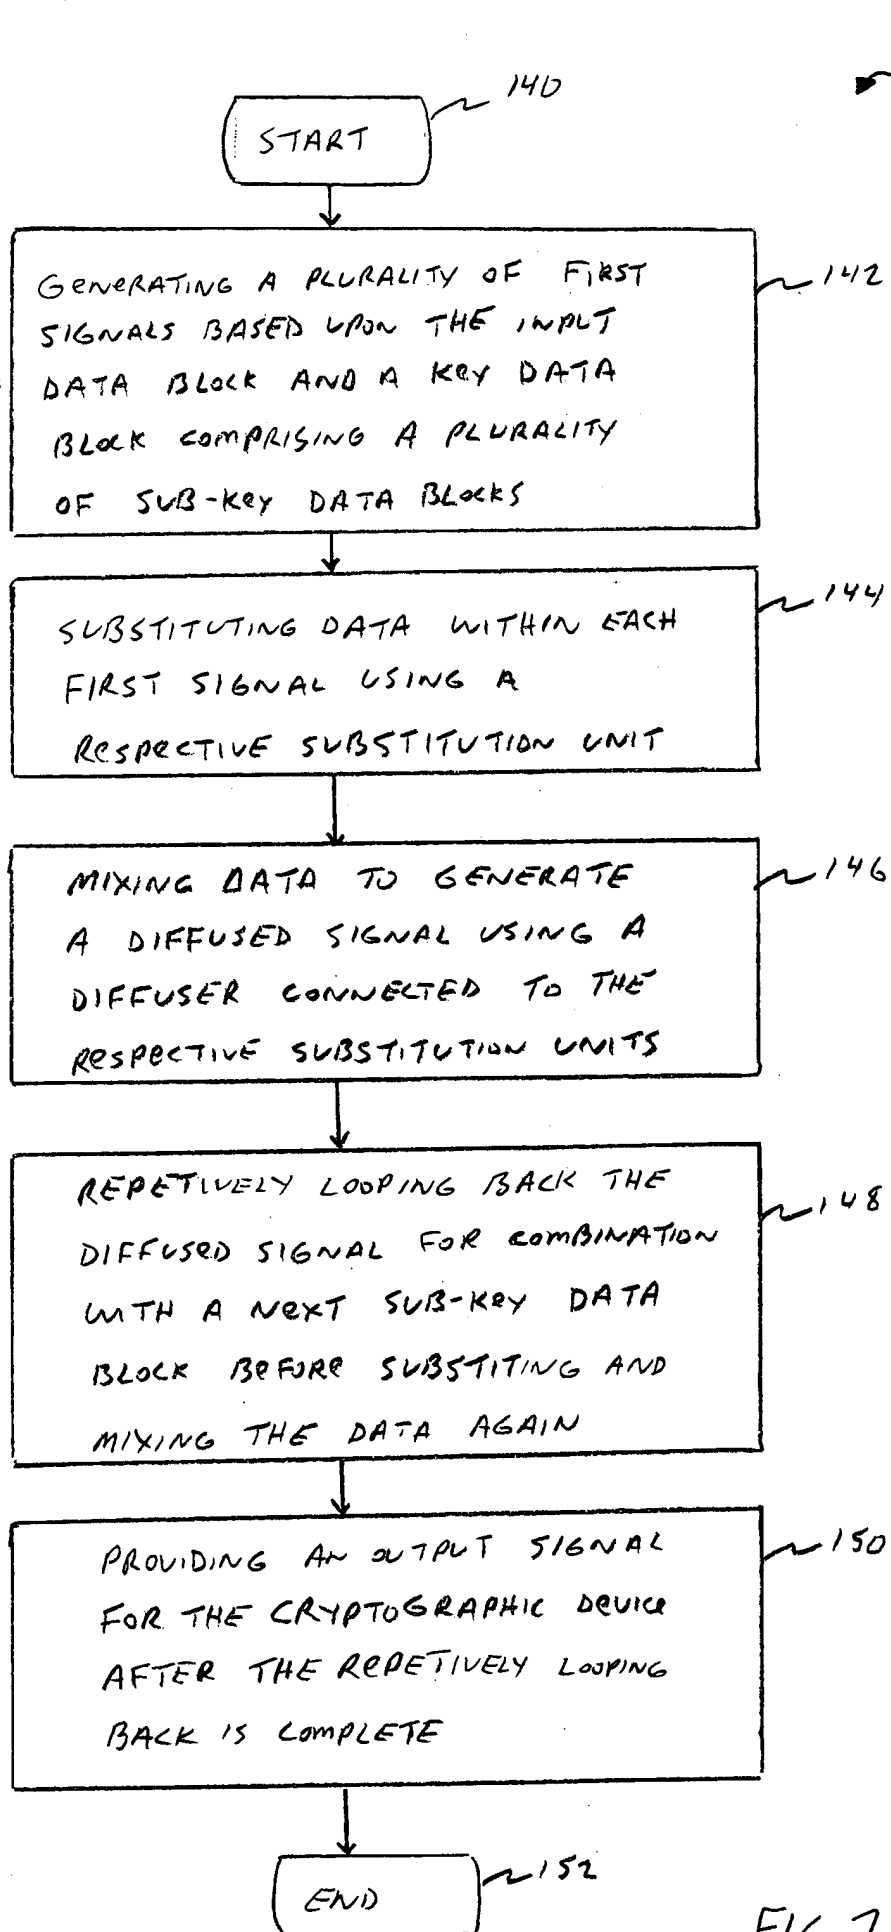 140
START
142
GENERATING A PLURALITY OF FIRST
SIGNALS BASED UPON THE INPUT
DATA BLOCK AND A KEY DATA
BLOCK COMPRISING A PLURALITY
OF SUB-KEY DATA BLOCKS
144
SUBSTITUTING DATA WITHIN EACH
FIRST SIGNAL USING A
RESPECTIVE SUBSTITUTION UNIT
146
MIXING DATA TO GENERATE
A DIFFUSED SIGNAL USING A
DIFFUSER CONNECTED TO THE
RESPECTIVE SUBSTITUTION UNITS
148
REPETIVELY LOOPING BACK THE
DIFFUSED SIGNAL FOR COMBINATION
WITH A NEXT SUB-KEY DATA
BLOCK BEFORE SUBSTITING AND
MIXING THE DATA AGAIN
150
PROVIDING AN OUTPUT SIGNAL
FOR THE CRYPTOGRAPHIC DEVICE
AFTER THE REPETIVELY LOOPING
BACK IS COMPLETE
152
END